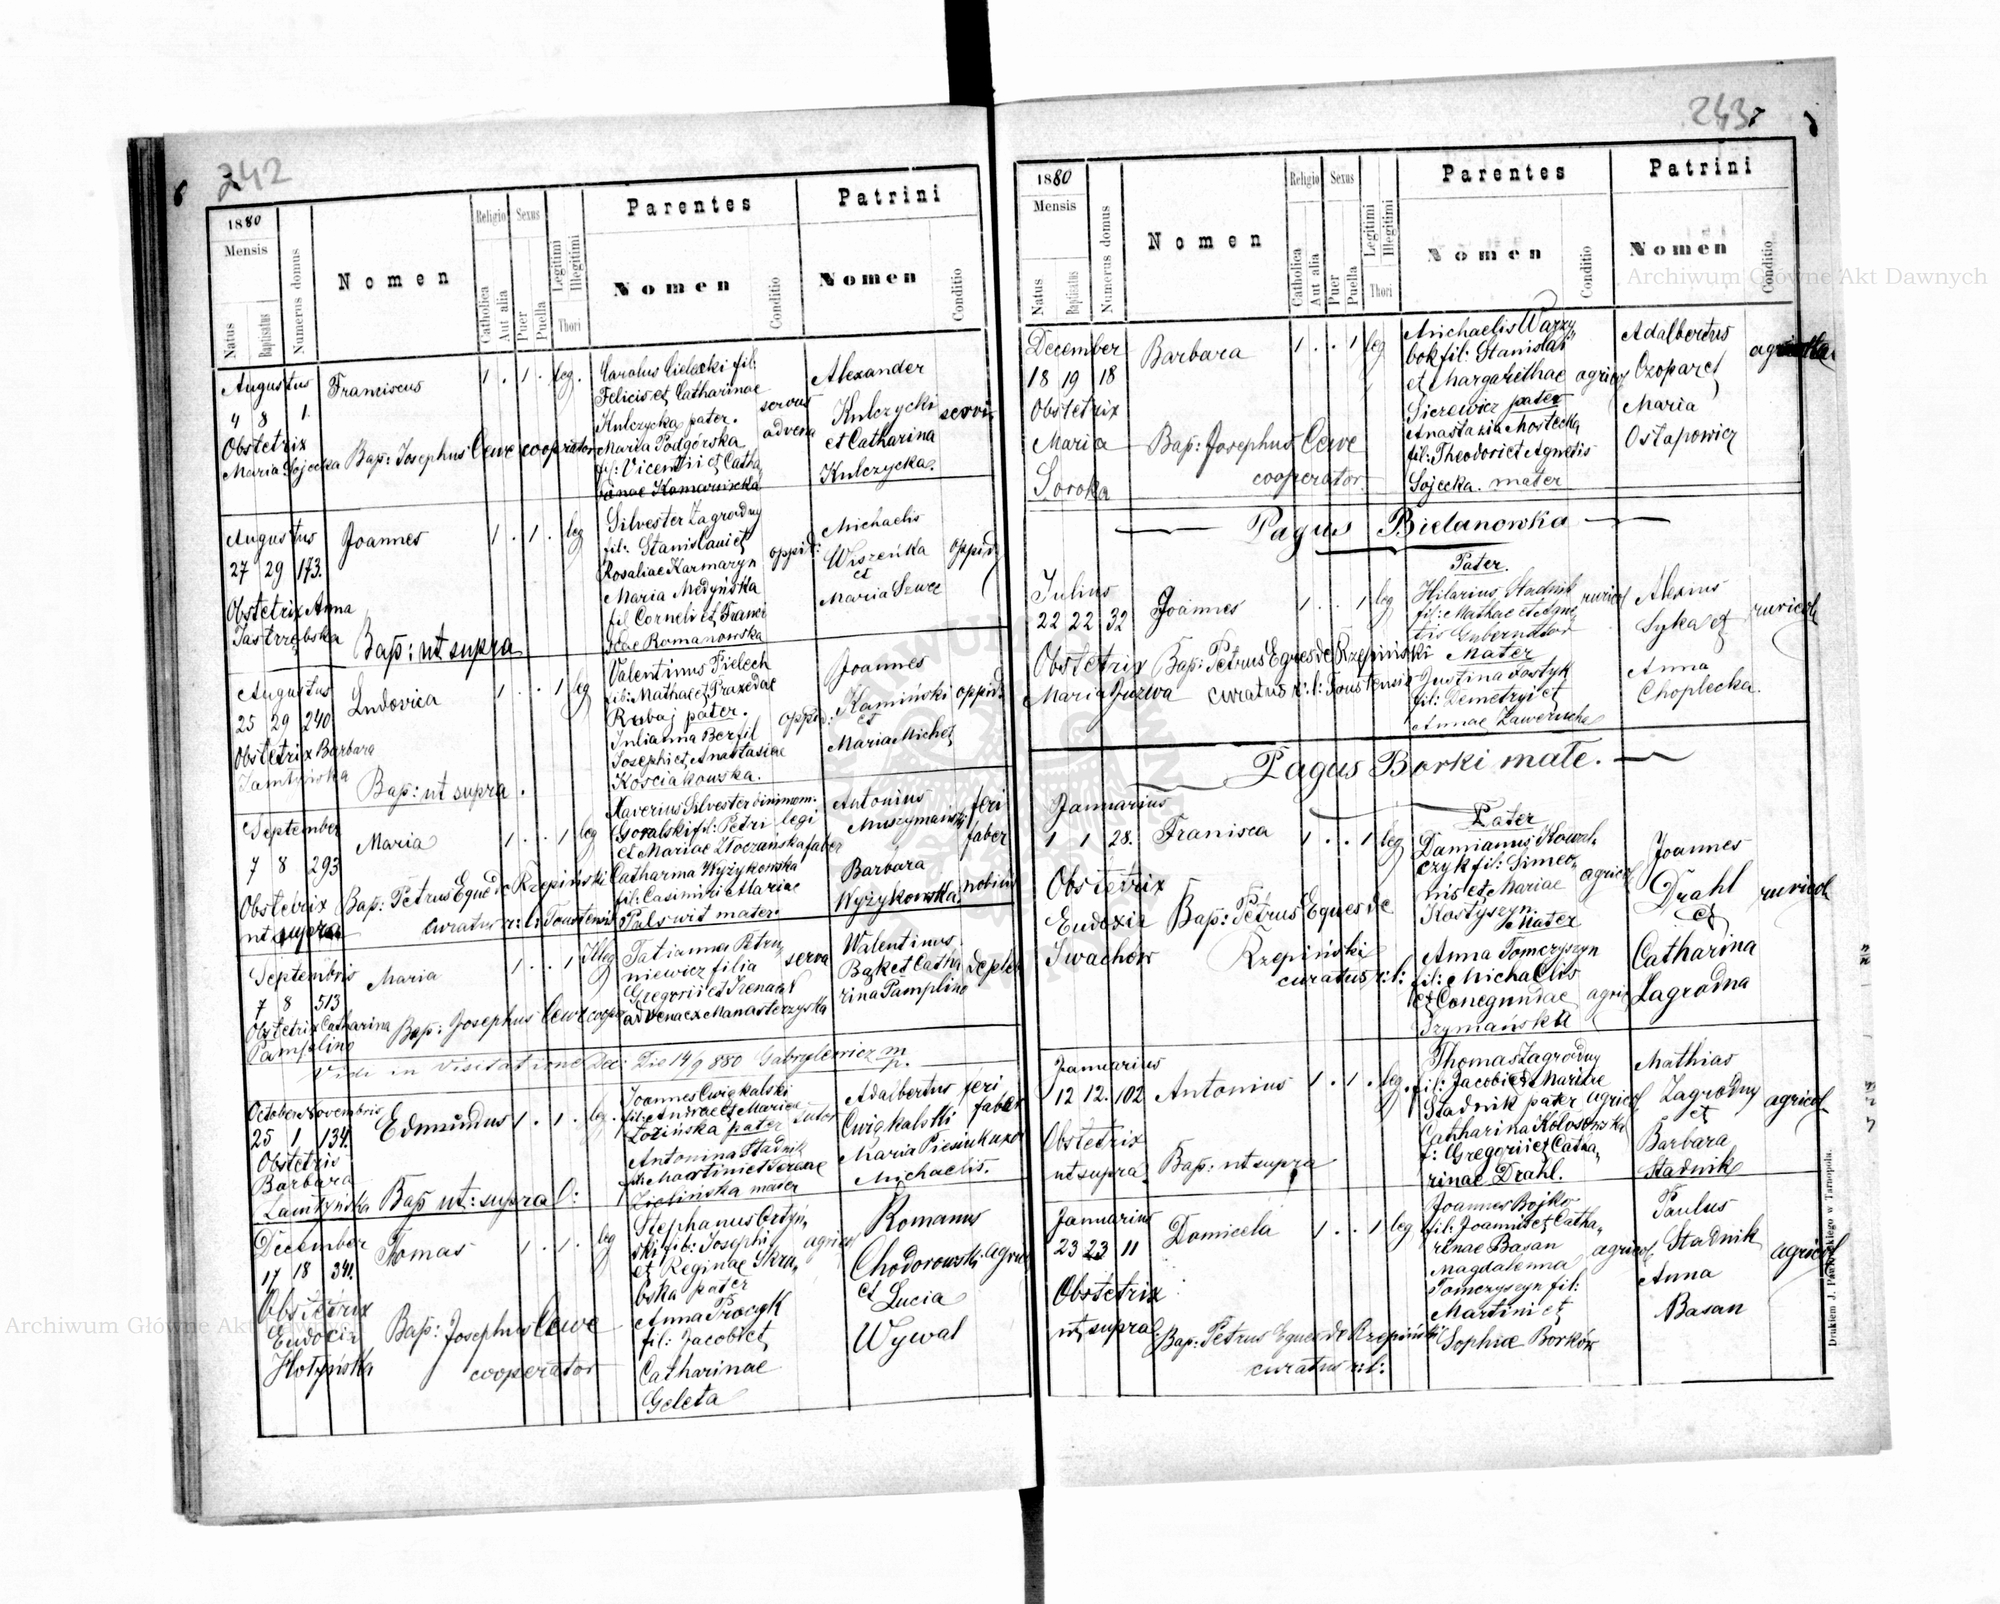 6
242
1880
Mensis
Natus
Baptisatus
Numerus domus
Nomen
Religio
Catholica
Aut alia
Sexus
Puer
Puella
Legitimi
Illegitimi
Thori
Parentes
Nomen
Conditio
Patrini
Nomen
Conditio
Augustus
4 8 1.
Obstetrix
Maria Sojecka
Franciscus
1 . 1 . leg.
Bap: Josephus Cewe cooperator
Carolus Cielecki fil:
Felicis et Catharinae
Kulczycka pater.
Maria Podgórska
fil: Vicentii et Catha
rinae Komarnicka
servus
advena
Alexander
Kulczycki
et Catharina
Kulczycka.
servi
Augustus
27 29 173.
Obstetrix Anna
Jastrzębska
Joannes
1 . 1 . leg
Bap: ut supra
Silvester Zagrodny
fil: Stanislai et
Rosaliae Karmazyn
Maria Medyńska
fil Cornelii et Franci
scae Romanowska
oppid:
Michaelis
Wiszeńka
et
Maria Szwec
oppid
Augustus
25 29 240
Obstetrix Barbara
Zamłyńska
Ludovica
1 . . 1 leg
Bap: ut supra.
Valentinus Pielech
fil: Mathae et Praxedae
Rabaj pater.
Julianna Berfil
Josephi et Anastasiae
Kościakowska.
oppid:
Joannes
Kamiński
et
Maria Michet
oppid
September
7 8 293
Obstetrix
ut supra
Maria
1 . . 1 leg
Bap: Petrus Eques de Rzepiński
curatus r: l: Toustensis
Xaverius Silvester bininom.
Goralski fil: Petri legi
et Mariae Złoczańska faber
Catharina Wyżykowska
fil: Casimiri et Mariae
Palswit mater.
Antonius
Muszymański
Barbara
Wyżykowska
feri
faber
nobilis
Septembris
7 8 513
Obstetrix Catharina
Pamplino
Maria
1 . . 1 Illeg
Bap: Josephus Cewe cooper
Tatianna Petru
niewicz filia
Gregorii et Irenae
advenae x Manasterzyska
serva
Walentinus
Bąk et Catha
rina Pamplino
Vidi in visitatione Dec: Die 14/9 880 Gabrylewicz m
p.
October Novembris
25 1 134.
Obstetrix
Barbara
Zamłyńska
Edmundus
1 . 1 . leg.
Bap ut: supra l:
Joannes Ćwiąkalski
fil: Andreae et Mariae
Łozińska pater
Antonina Stadnik
fil: Martini et Teresae
Zielińska mater
sutor
Adalbertus
Ćwiąkalski
Maria Piesiuk uxor
Michaelis.
feri
faber
December
17 18 341.
Obstetrix
Eudocia
Hołyńska
Tomas
1 . 1 . leg
Bap: Josephus Cewe
cooperator
Stephanus Ortyń,
ski fil: Josephi
et Reginae Skra,
bska pater
Anna Procyk
fil: Jacobi et
Catharinae
Geleta
agricol
Romanus
Chodorowski
et
Lucia
Wywal
agricol
243
7
1880
Mensis
Natus
Baptisatus
Numerus domus
Nomen
Religio
Catholica
Aut alia
Sexus
Puer
Puella
Legitimi
Illegitimi
Thori
Parentes
Nomen
Conditio
Patrini
Nomen
Conditio
December
18 19 18
Obstetrix
Maria
Soroka
Barbara
1 . . 1 leg
Bap: Josephus Cewe
cooperator.
Michaelis Warzy,
bok fil: Stanislai
et Margarethae
Sierewicz pater
Anastazia Mostecka
fil: Theodori et Agnetis
Sojecka. mater
agricol
Adalbertus
Ozoparet
Maria
Ostapowicz
Pagus Bielanowka
Julius
22 22 32
Obstetrix
Maria Guzwa
Joannes
1 . . 1 leg
Bap: Petrus Eques de Rzepiński
curatus r: l: Toustensis
Pater.
Hilarius Stadnik
fil: Mathae et Agne,
tis Gubernator
Mater
Justina Fostyk
fil: Demetryi et
Annae Zawerucha
ruricol
Alexius
Syka et
Anna
Choplecka.
ruricol
Pagus Borki małe.
Januarius
1 1 28.
Obstetrix
Eudoxia
Iwachów
Francisca
1 . . 1 leg
Bap: Petrus Eques de
Rzepiński
curatus r: l:
Pater
Damianus Kowal,
czyk fil: Simeo,
nis et Mariae
Kostyszyn
Mater
Anna Tomczyszyn
fil: Michaelis
et Conegundae
Szymańska
agricol
agric
Joannes
Drahl
et
Catharina
Zagrodna
ruricol
Januarius
12 12. 102
Obstetrix
ut supra.
Antonius
1 . 1 . leg.
Bap: ut supra
Thomas Zagrodny
fil: Jacobi et Mariae
Stadnik pater agricol
Catharina Kolosowska
f: Gregorii et Catha,
rinae Drahl.
Mathias
Zagrodny
et
Barbara
Stadnik
agricol
Januarius
23 23 11
Obstetrix
ut supra.
Domicela
1 . . 1 leg
Bap: Petrus Eques de Rzepiński
curatus r: l:
Joannes Bojko
fil: Joannis et Catha,
rinae Basan
Magdalenna
Tomczyszyn fil:
Martini et
Sophiae Borków
agricol.
Paulus
Stadnik
Anna
Basan
agricol
Drukiem J. Pawłowskiego w Tarnopolu.
Archiwum Główne Akt Dawnych
Archiwum Główne Akt Dawnych